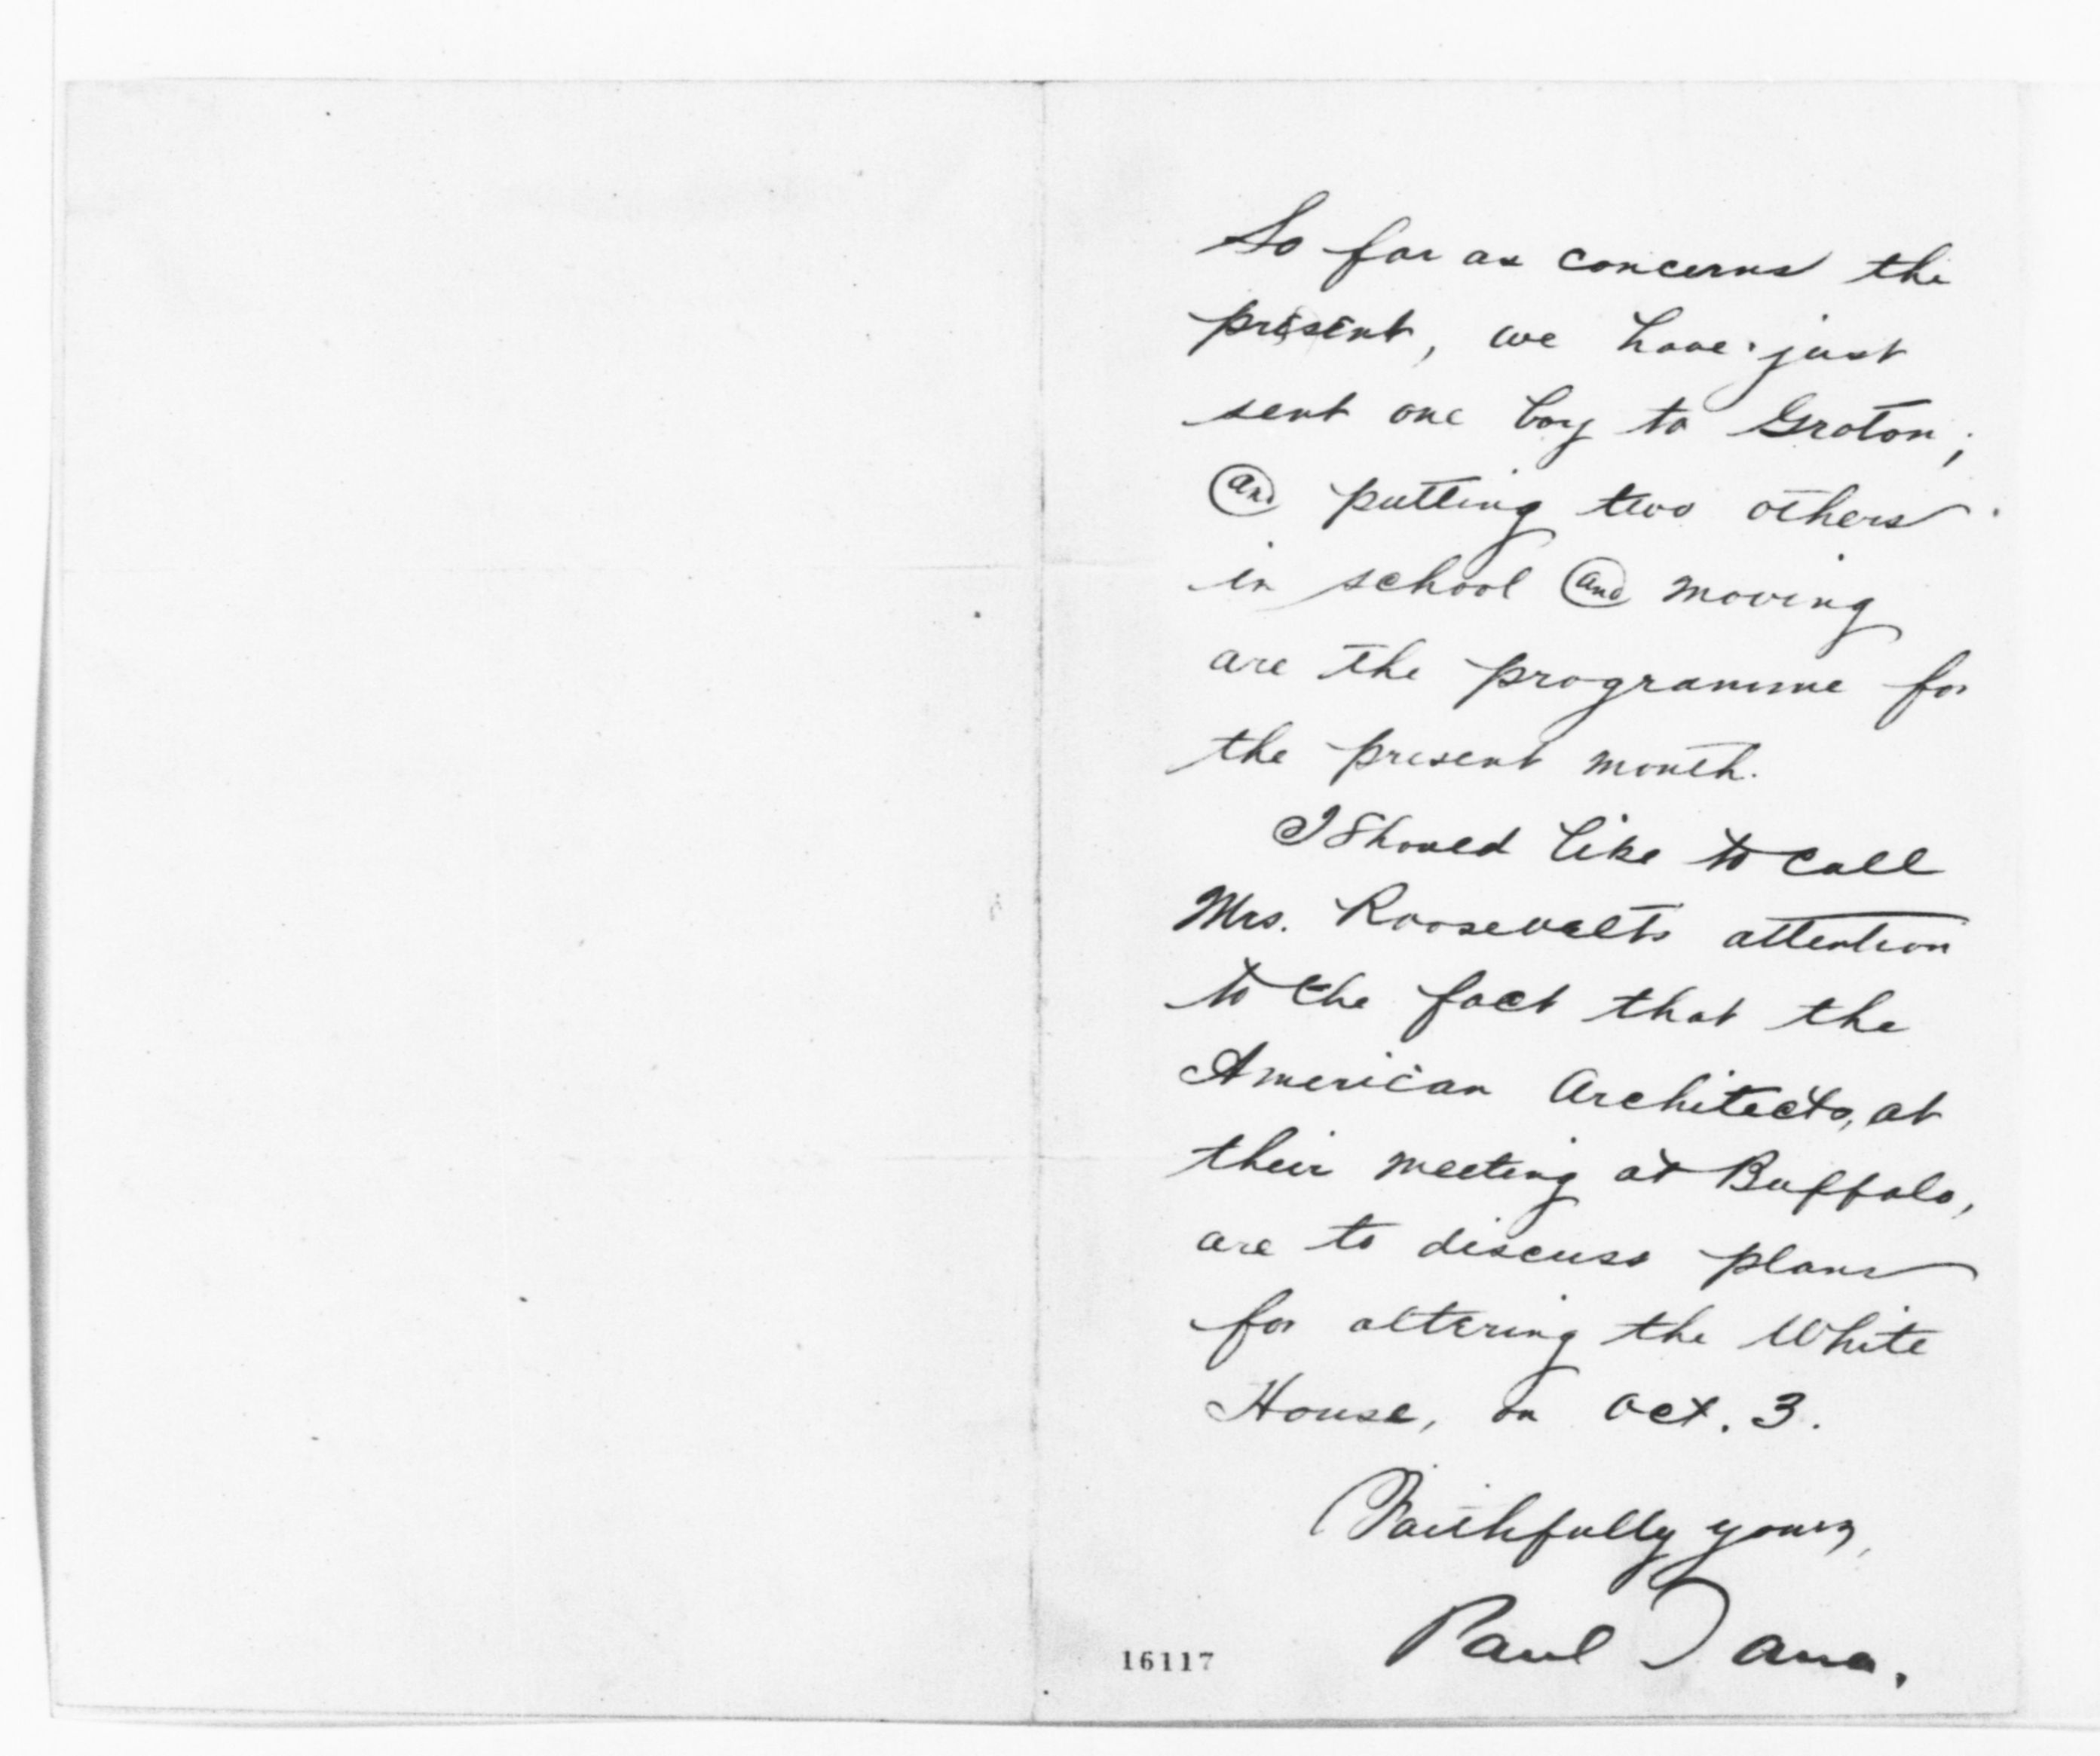 So far as concerns the
present, we have just
sent one boy to Groton;
and putting two others
in school and moving
are the programme for
the present month.
I should like to call
Mrs. Roosevelts attention
to the fact that the
American Architects, at
their meeting at Buffalo,
are to discuss plans
for altering the White
House, on Oct. 3.
Faithfully yours,
Paul Dana.
16117